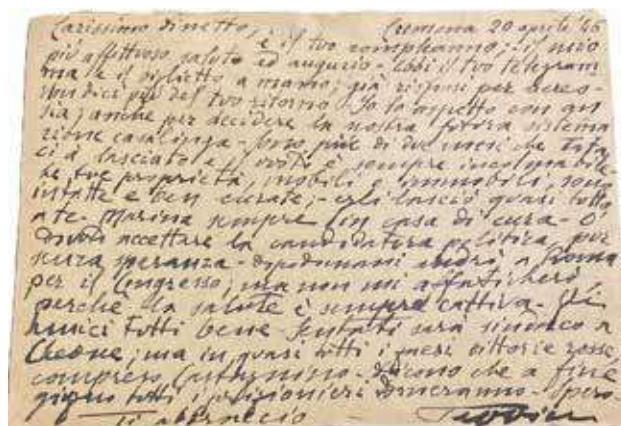 Carissimo Dinetto, Cremona 20 aprile '46
è il tuo compleanno; il mio
più affettuoso saluto ed augurio - Ebbi il tuo telegram
ma e il biglietto a mano; già risposi per aereo -
non dici più del tuo ritorno. Io ti aspetto con an
sia; anche per decidere la nostra futura sistema
zione casalinga - Sono più di due mesi che
ci à lasciato e il vuoto è sempre incolmabile
le tue proprietà, mobili e immobili, sono
intatte e ben curate; - egli lasciò quasi tutto
a te - Marina sempre in casa di cura - O
dovuto accettare la candidatura politica, pur
senza speranza - dopodomani andrò a Roma
per il Congresso; ma non mi affaticherò,
perchè la salute è sempre cattiva - Gli
amici tutti bene - sarà sindaco a
ma in quasi tutti i paesi vittorie rosse
compreso - Dicono che a fine
giugno tutti i prigionieri torneranno - Spero -
Ti abbraccio